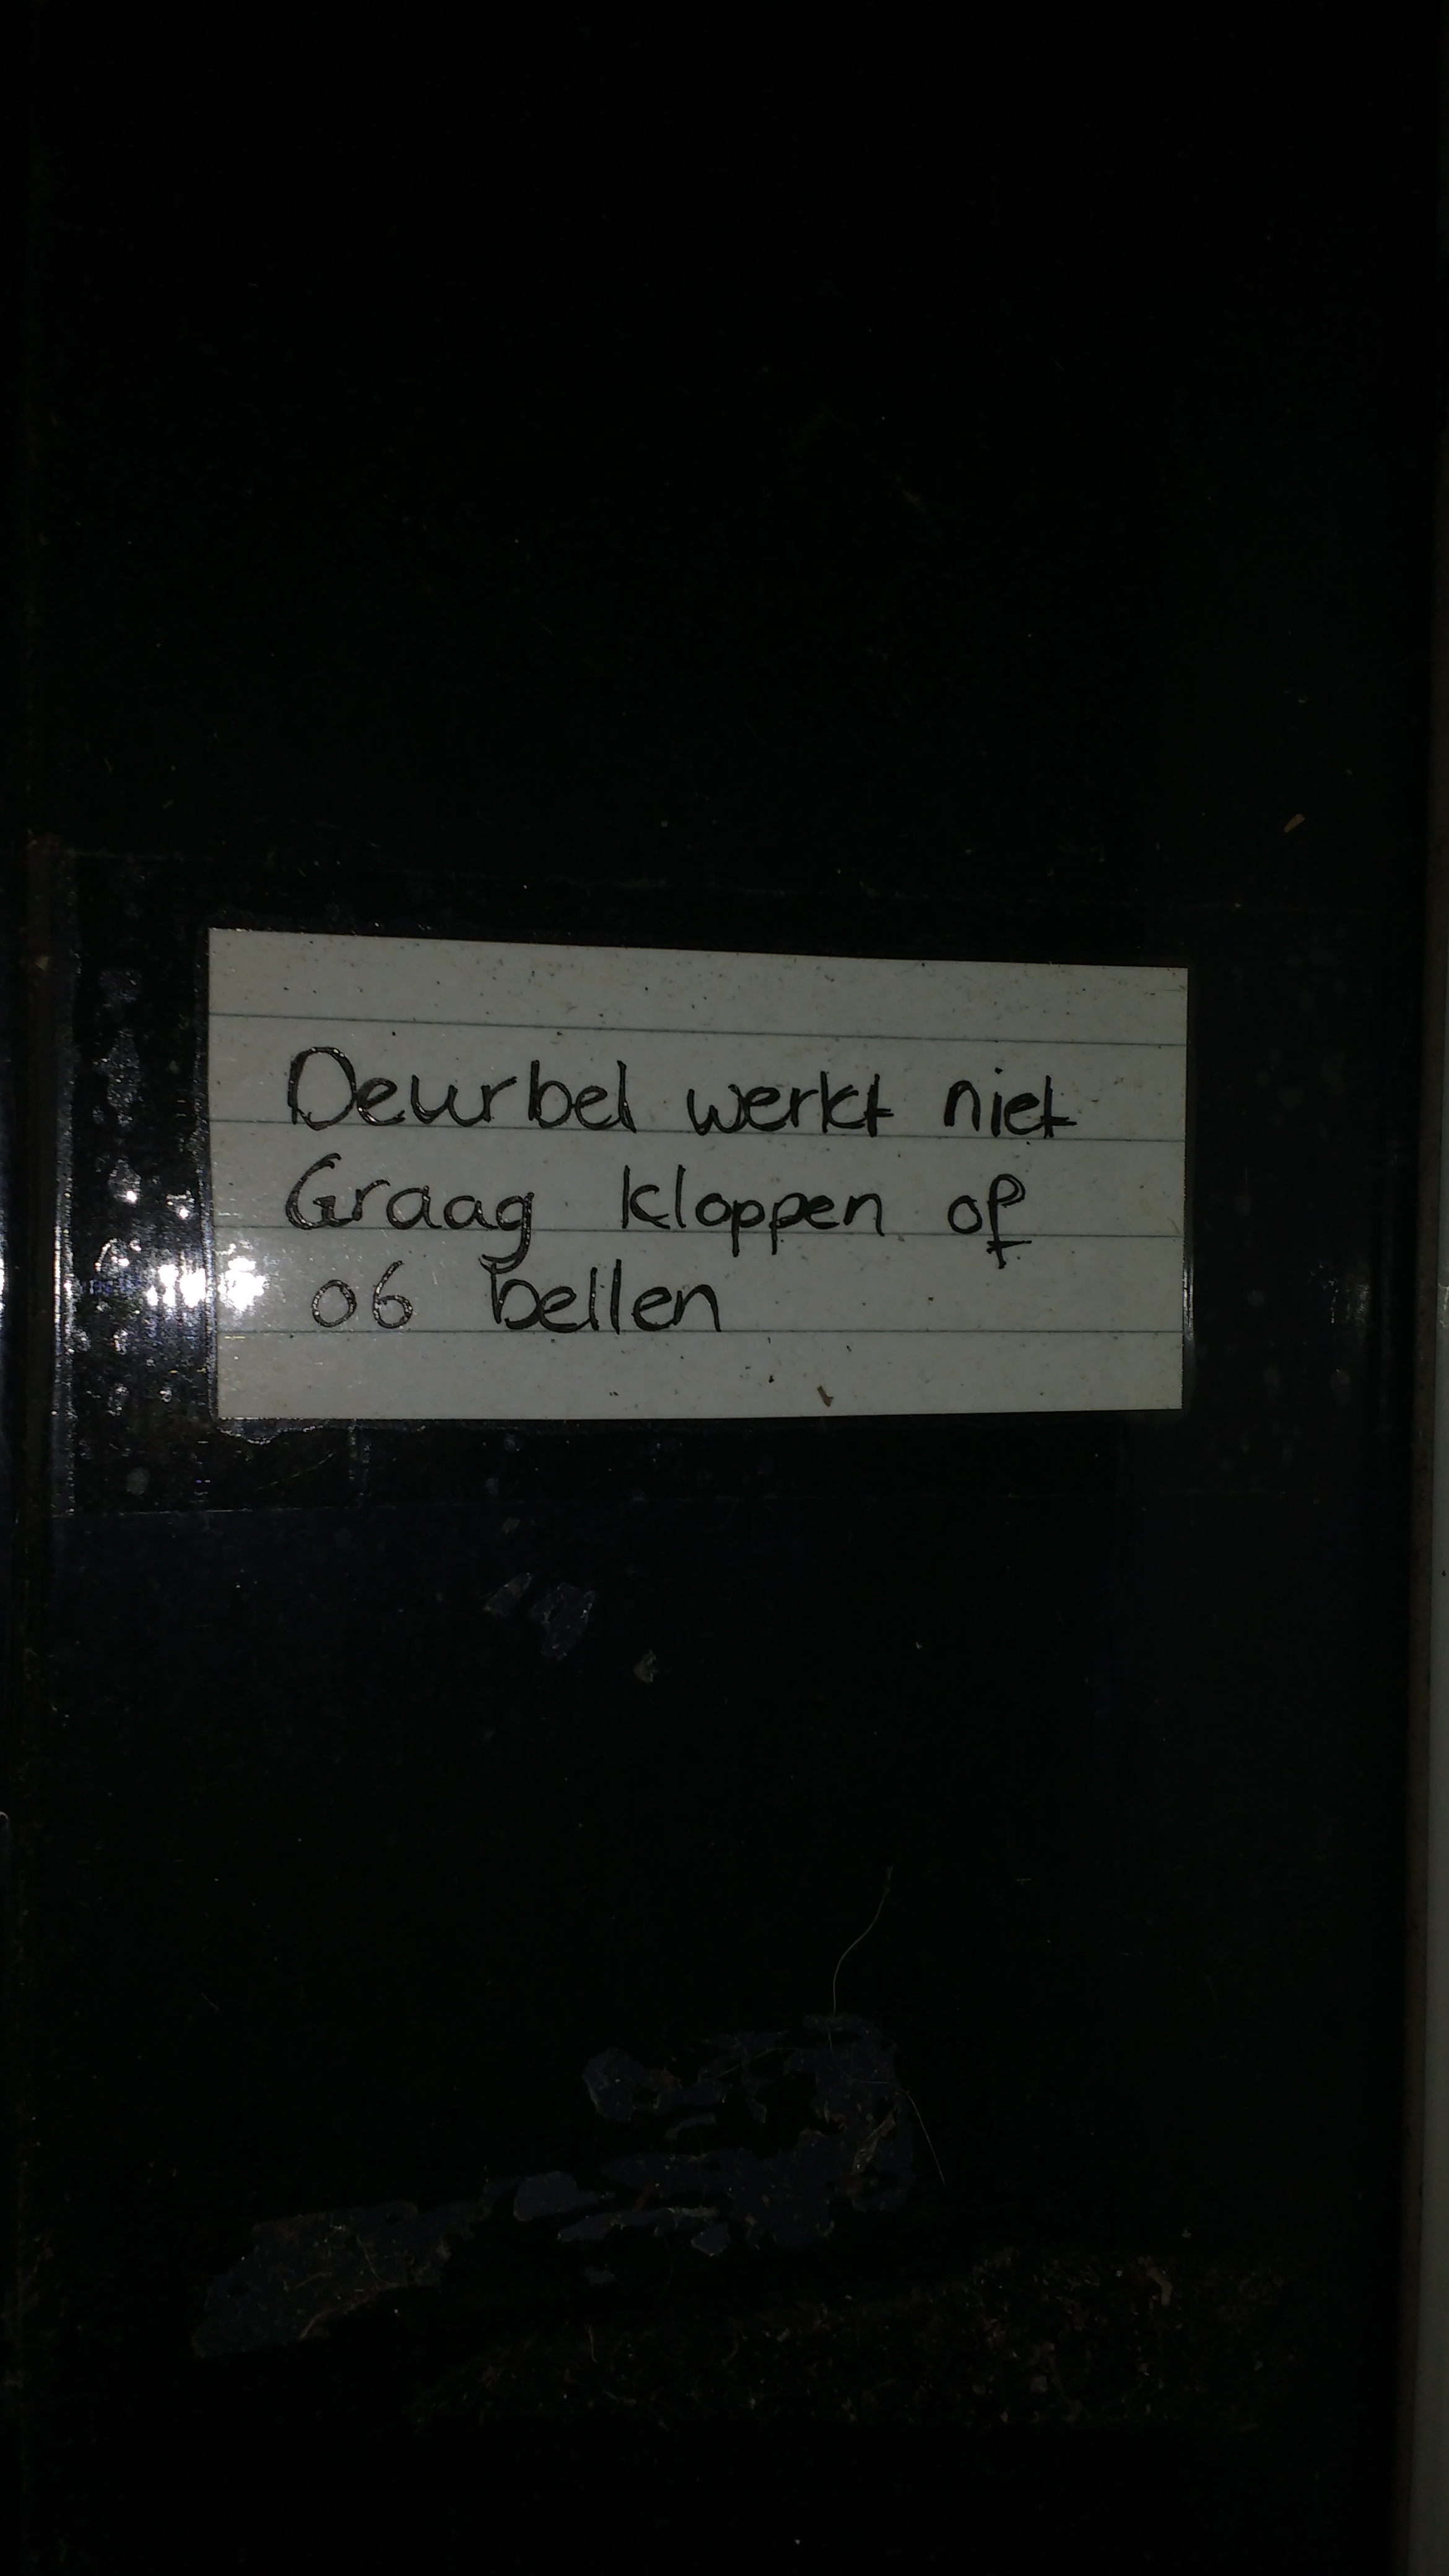 Deurbel werkt niet
Graag kloppen of
06 bellen